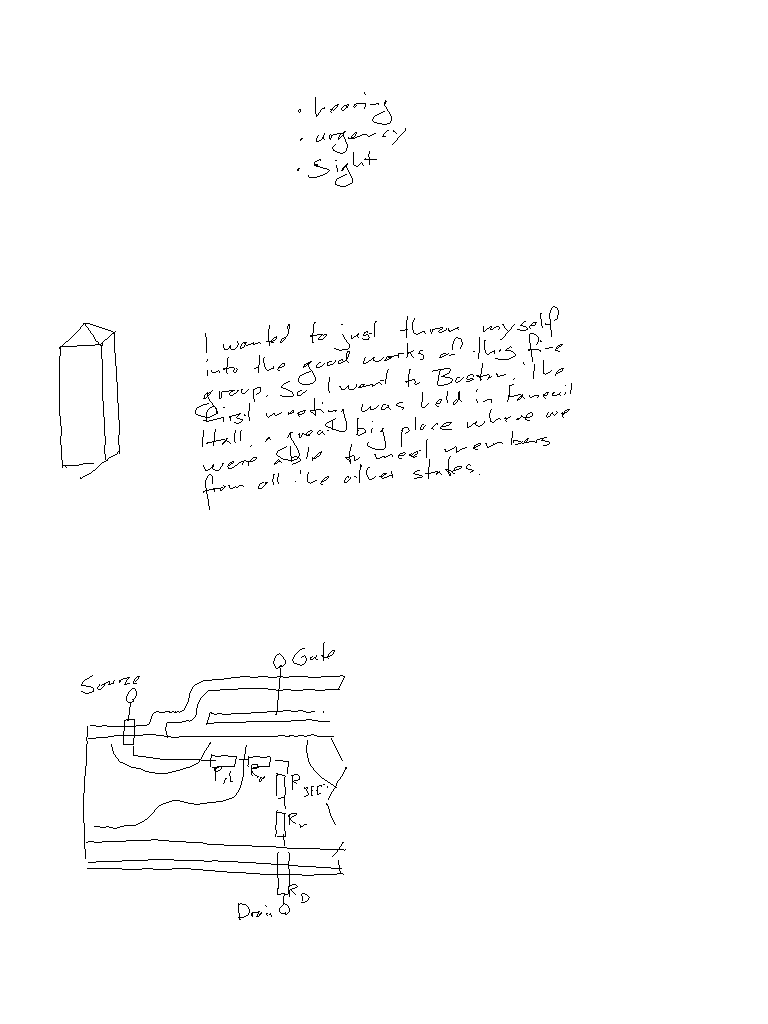 · hearing
· urgency
· Sight
I wanted to just throw myself
into the good works of this fine
group. So I went to Boston. The
first meeting was held in Faneuil
Hall, a great big place where we
were able to meet members
from all the other states.
Gate
Source
Ra
Rv
RD
Drain